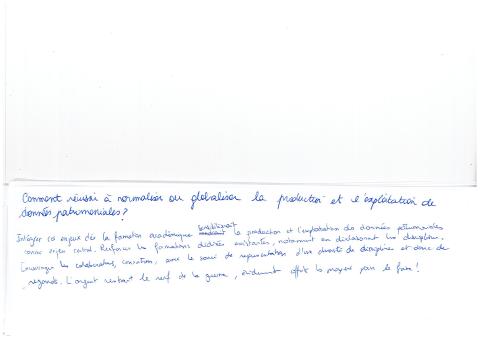 Comment réussir à normaliser ou globaliser la production et l'exploitation de
données patrimoniales?
Intégrer ces enjeux dès la formation académique sensibilisant la production et l'exploitation de données patrimoniales
comme enjeu central. Renforcer les formations dédiées existantes, notamment en décloisonnant les disciplines.
Encourager les collaborations, avec le souci de représentation d'une diversité de disciplines et donc de
regards. L'argent restant le nerf de la guerre, évidemment offrir les moyens pour le faire!